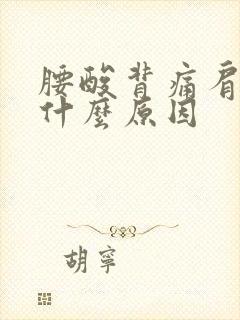 腰酸背痛肩
什麼原因
胡寧